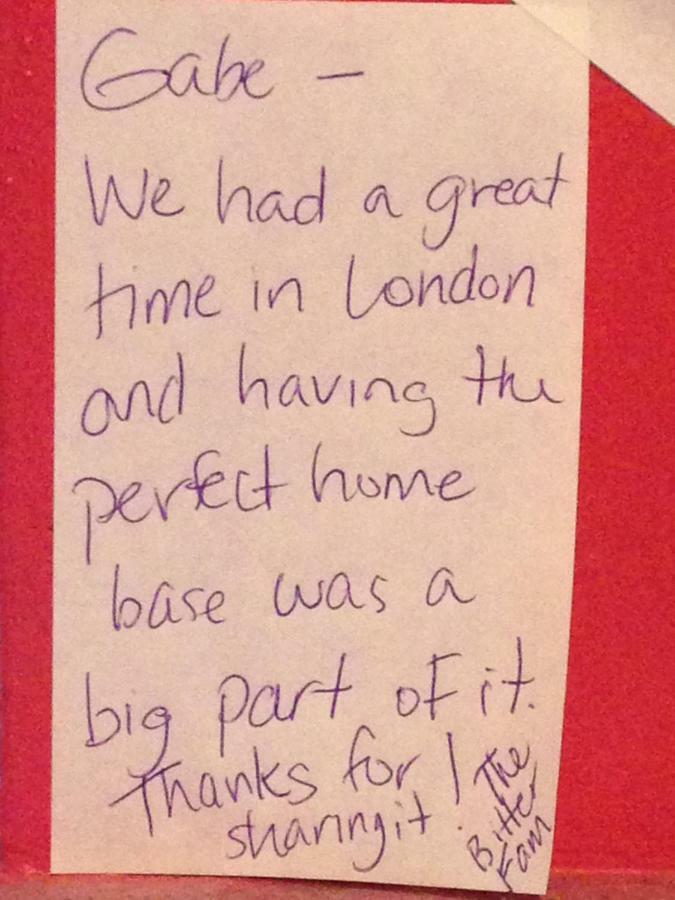 Gabe —
We had a great
time in London
and having the
perfect home
base was a
big part of it.
Thanks for
sharing it!
The
Bitter
Fam